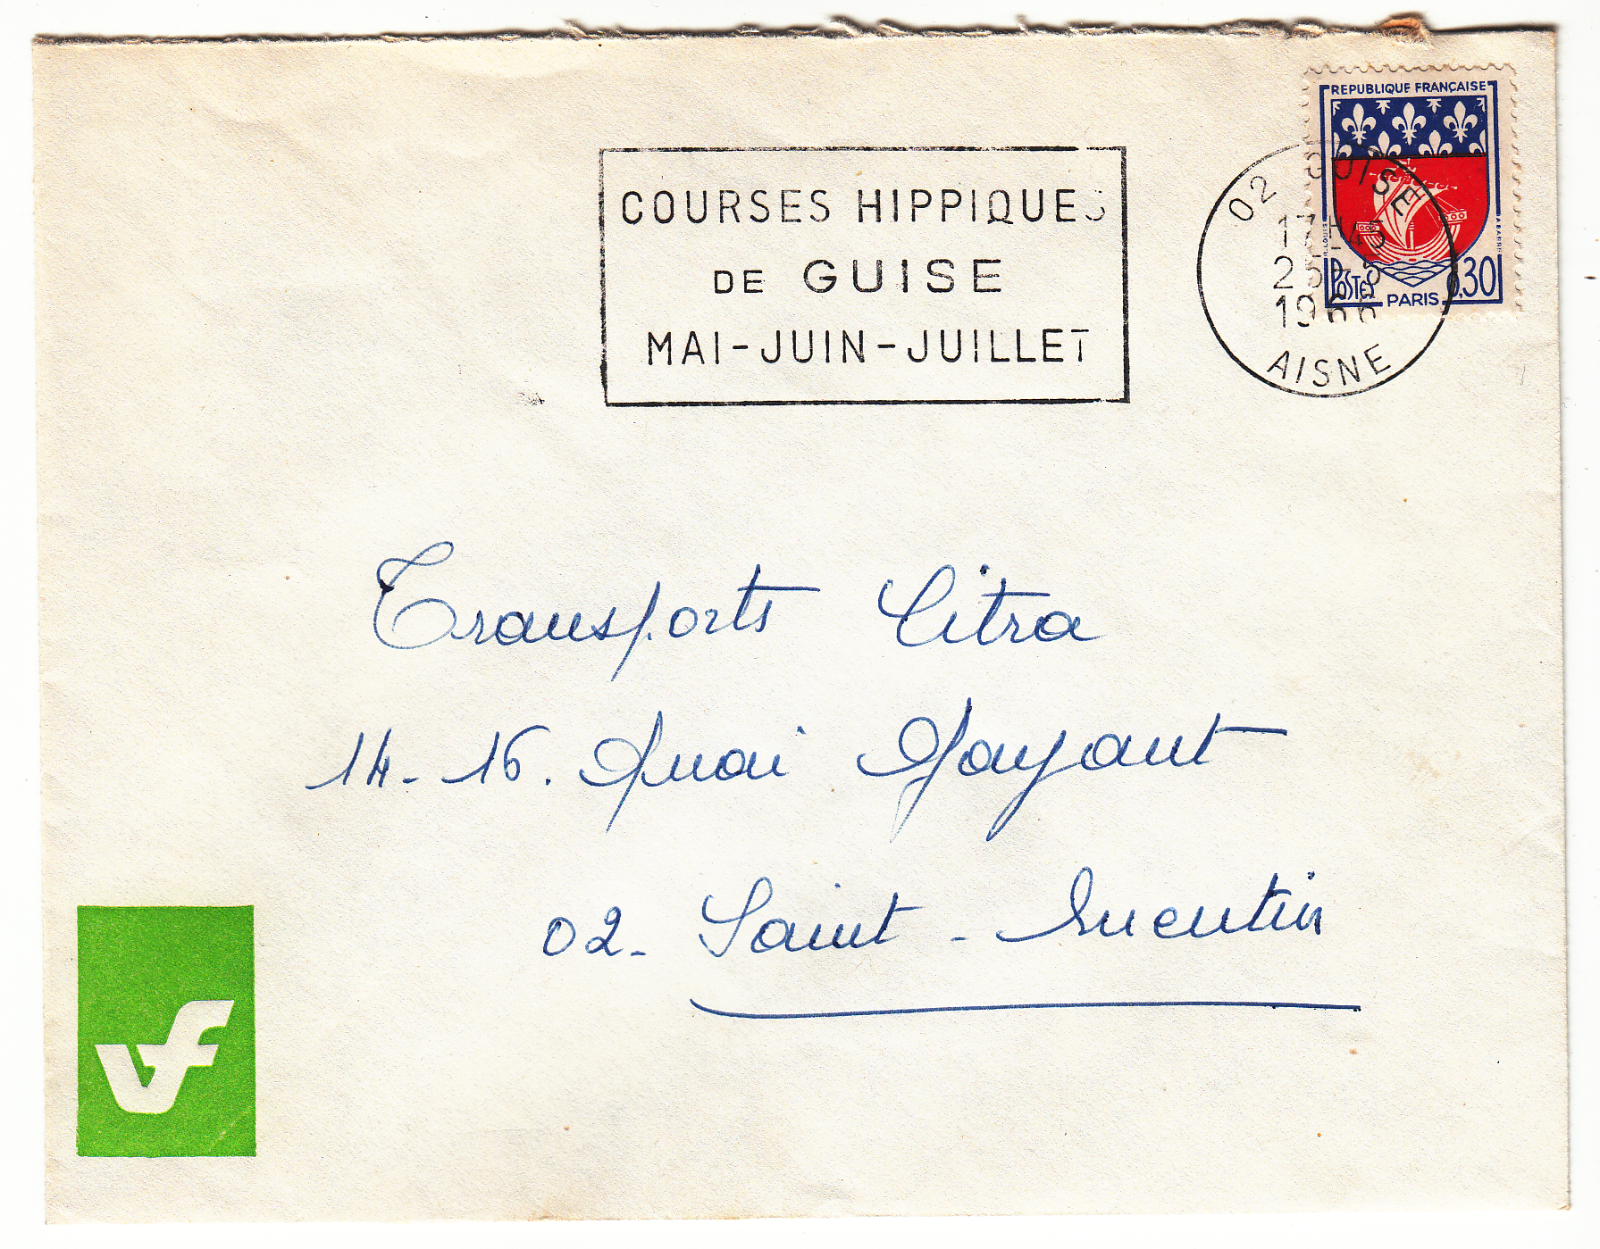 REPUBLIQUE FRANÇAISE
COURSES HIPPIQUES
DE GUISE
MAI-JUIN-JUILLET
02 GUISE
17H45
25-5
1966
AISNE
POSTES
PARIS
0,30
Transports Citra
14-16. Quai Gayant
02- Saint-Quentin
vf